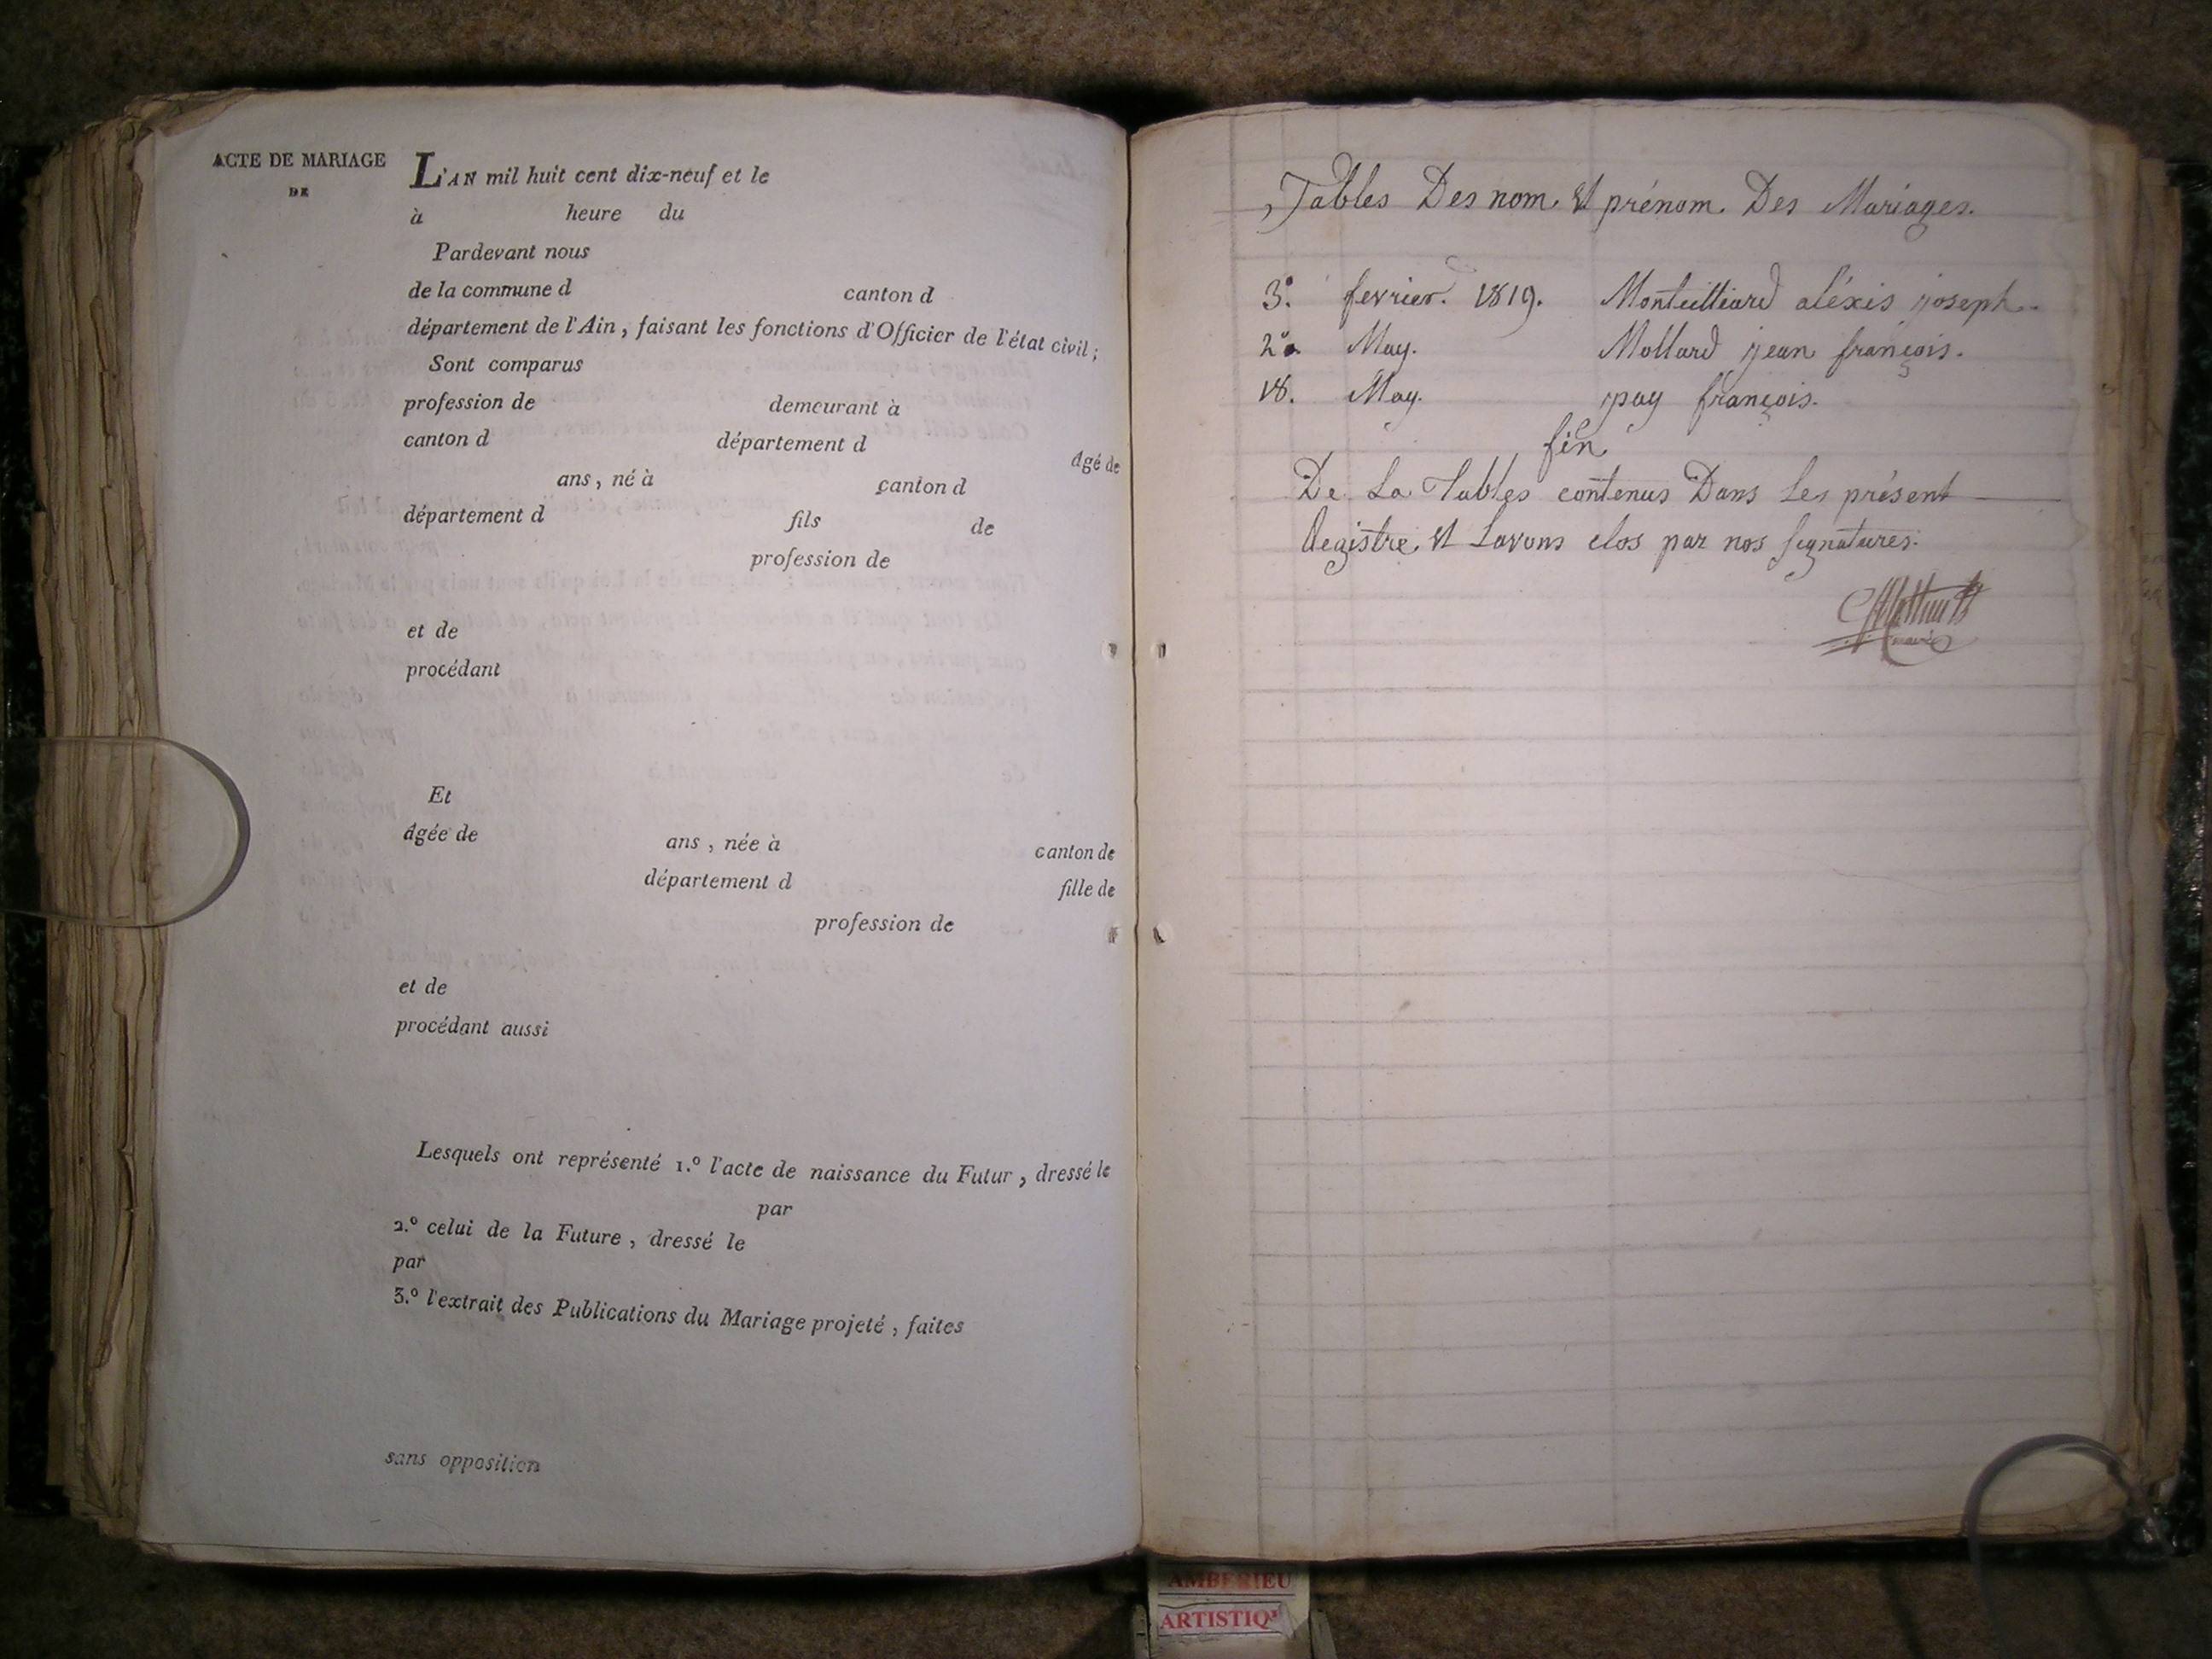 ACTE DE MARIAGE
DE
L'AN mil huit cent dix-neuf et le
à heure du
Pardevant nous
de la commune d canton d
département de l'Ain, faisant les fonctions d'Officier de l'état civil;
Sont comparus
profession de demeurant à
canton d département d âgé de
ans, né à canton d
département d fils de
profession de
et de
procédant
Et
âgée de ans, née à canton de
département d fille de
profession de
et de
procédant aussi
Lesquels ont représenté 1.º l'acte de naissance du Futur, dressé le
par
2.º celui de la Future, dressé le
par
3.º l'extrait des Publications du Mariage projeté, faites
sans opposition
Tables Des nom Et prénom Des Mariages.
3. fevrier. 1819. Monteilliard aléxis joseph.
2. May. Mollard jean françois.
18. May. pay françois.
fin
De La Tables contenus Dans Les présent
Registre Et Lavons clos par nos signatures.
maire
AMBERIEU
ARTISTIQ